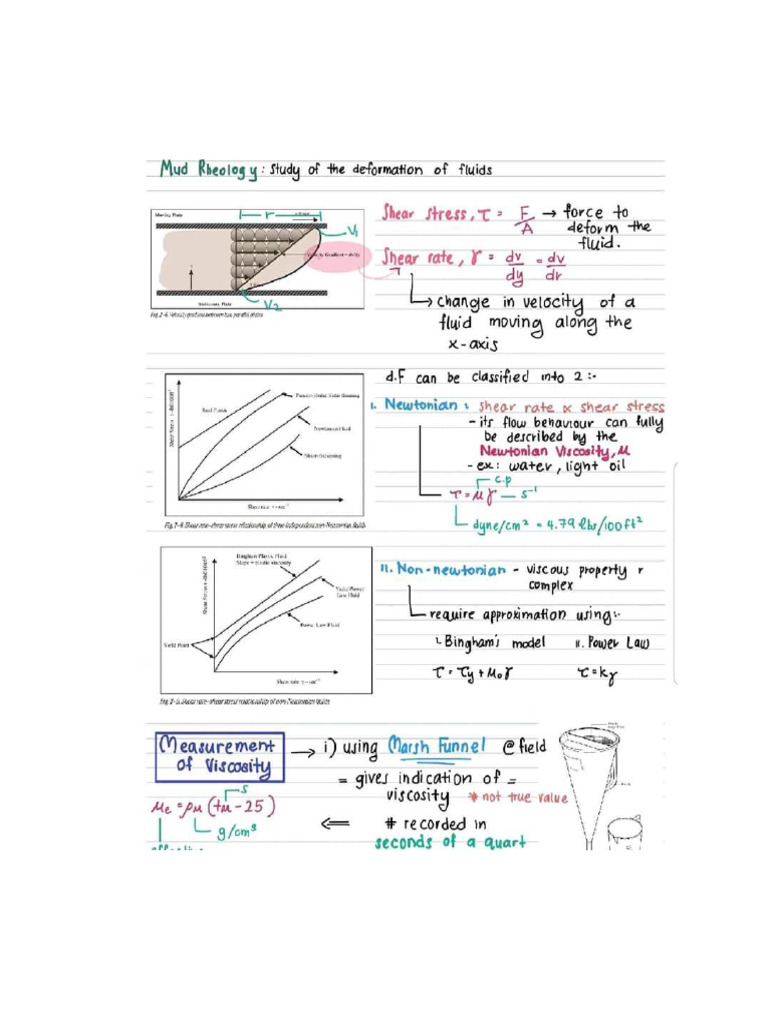 Mud Rheology : Study of the deformation of fluids
Moving Plate
r
V1
Velocity Gradient = dv/dy
V2
Stationary Plate
Fig. 2-6. Velocity gradient between two parallel plates
Shear stress, τ = F/A → force to
deform the
fluid.
Shear rate, γ = dv/dy = dv/dr
change in velocity of a
fluid moving along the
x-axis
d.F can be classified into 2 :-
I. Newtonian : shear rate ∝ shear stress
- its flow behaviour can fully
be described by the
Newtonian Viscosity, μ
- ex: water, light oil
c.p
τ = μ γ — s⁻¹
dyne/cm² = 4.79 lbs/100ft²
Newtonian fluid
Shear thickening
Shear rate γ - sec⁻¹
Shear rate-shear stress relationship of time independent non-Newtonian fluids
II. Non-newtonian - viscous property r
complex
require approximation using:-
i. Bingham's model ii. Power Law
τ = τy + μ₀γ τ = kγ
Bingham Plastic Fluid
Slope = plastic viscosity
Yield Power
Law Fluid
Power Law Fluid
Yield Point
Shear rate γ - sec⁻¹
Shear rate-shear stress relationship of non-Newtonian fluids
Measurement
of Viscosity
→ i) using Marsh Funnel @ field
= gives indication of =
viscosity * not true value
# recorded in
seconds of a quart
⇐
s
μe = ρm (tm - 25)
g/cm³